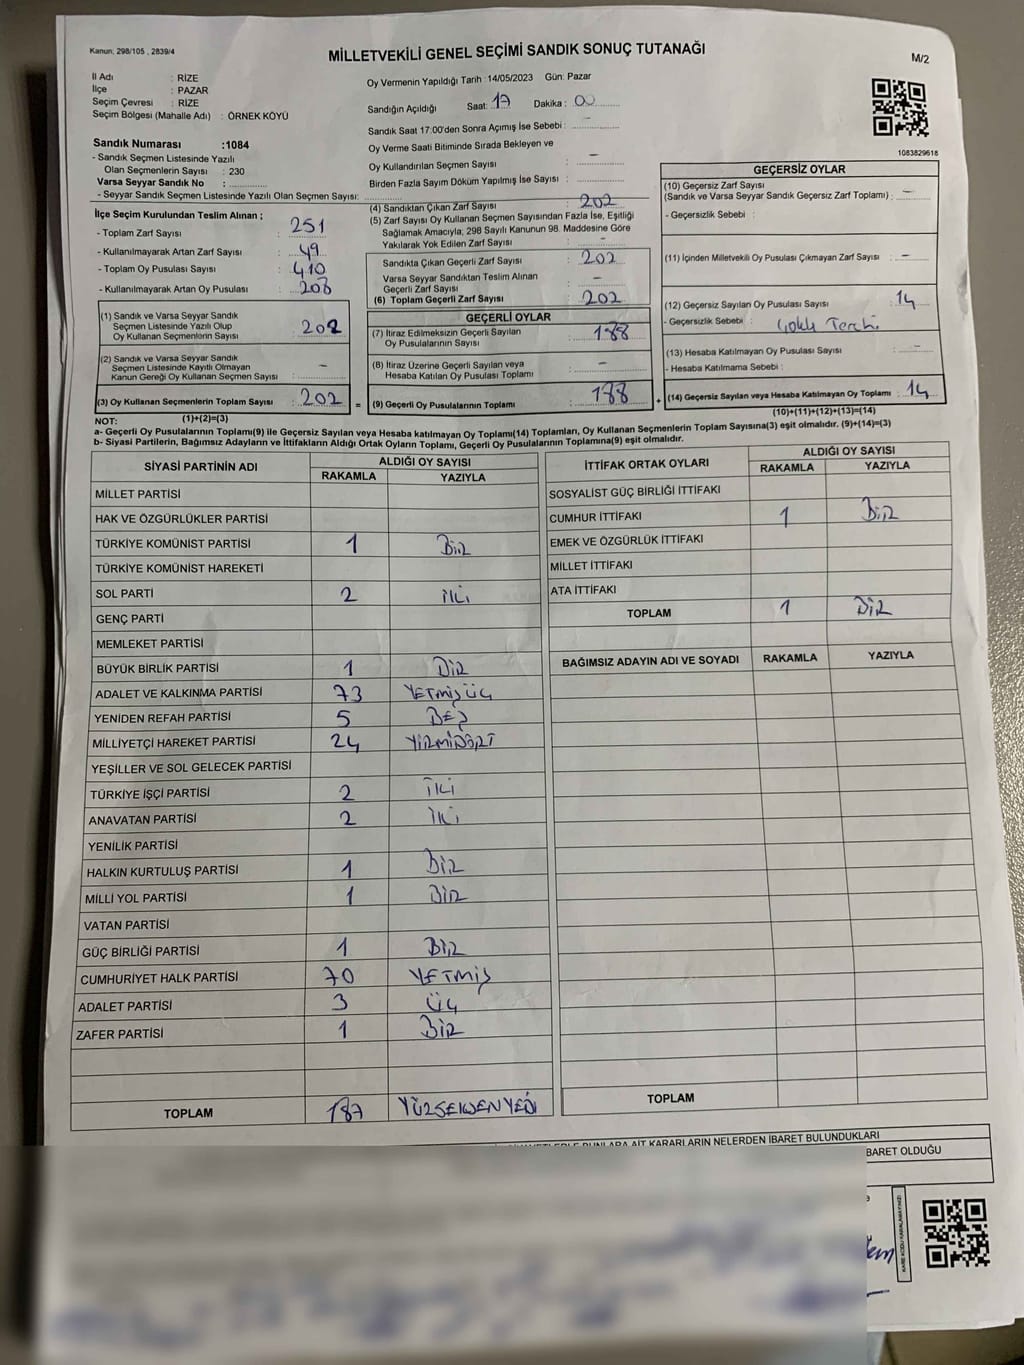 Kanun: 298/105 , 2839/4
MİLLETVEKİLİ GENEL SEÇİMİ SANDIK SONUÇ TUTANAĞI
M/2
İl Adı : RİZE
İlçe : PAZAR
Seçim Çevresi : RİZE
Seçim Bölgesi (Mahalle Adı) : ÖRNEK KÖYÜ
Sandık Numarası :1084
- Sandık Seçmen Listesinde Yazılı
Olan Seçmenlerin Sayısı : 230
Varsa Seyyar Sandık No :
- Seyyar Sandık Seçmen Listesinde Yazılı Olan Seçmen Sayısı:
Oy Vermenin Yapıldığı Tarih :14/05/2023 Gün: Pazar
Sandığın Açıldığı Saat: 17 Dakika : 00
Sandık Saat 17:00'den Sonra Açılmış İse Sebebi : -
Oy Verme Saati Bitiminde Sırada Bekleyen ve
Oy Kullandırılan Seçmen Sayısı : -
Birden Fazla Sayım Döküm Yapılmış İse Sayısı : -
1083829618
İlçe Seçim Kurulundan Teslim Alınan ;
- Toplam Zarf Sayısı : 251
- Kullanılmayarak Artan Zarf Sayısı : 49
- Toplam Oy Pusulası Sayısı : 410
- Kullanılmayarak Artan Oy Pusulası : 208
(1) Sandık ve Varsa Seyyar Sandık
Seçmen Listesinde Yazılı Olup
Oy Kullanan Seçmenlerin Sayısı : 202
(2) Sandık ve Varsa Seyyar Sandık
Seçmen Listesinde Kayıtlı Olmayan
Kanun Gereği Oy Kullanan Seçmen Sayısı : -
(3) Oy Kullanan Seçmenlerin Toplam Sayısı : 202
(4) Sandıktan Çıkan Zarf Sayısı : 202
(5) Zarf Sayısı Oy Kullanan Seçmen Sayısından Fazla İse, Eşitliği
Sağlamak Amacıyla; 298 Sayılı Kanunun 98. Maddesine Göre
Yakılarak Yok Edilen Zarf Sayısı : -
Sandıkta Çıkan Geçerli Zarf Sayısı : 202
Varsa Seyyar Sandıktan Teslim Alınan
Geçerli Zarf Sayısı : -
(6) Toplam Geçerli Zarf Sayısı : 202
GEÇERLİ OYLAR
(7) İtiraz Edilmeksizin Geçerli Sayılan
Oy Pusulalarının Sayısı : 188
(8) İtiraz Üzerine Geçerli Sayılan veya
Hesaba Katılan Oy Pusulası Toplamı : -
= (9) Geçerli Oy Pusulalarının Toplamı : 188
GEÇERSİZ OYLAR
(10) Geçersiz Zarf Sayısı
(Sandık ve Varsa Seyyar Sandık Geçersiz Zarf Toplamı) : -
- Geçersizlik Sebebi :
(11) İçinden Milletvekili Oy Pusulası Çıkmayan Zarf Sayısı : -
(12) Geçersiz Sayılan Oy Pusulası Sayısı : 14
- Geçersizlik Sebebi : Çoklu Tercih
(13) Hesaba Katılmayan Oy Pusulası Sayısı : -
- Hesaba Katılmama Sebebi :
+ (14) Geçersiz Sayılan veya Hesaba Katılmayan Oy Toplamı : 14
NOT: (1)+(2)=(3)
(10)+(11)+(12)+(13)=(14)
a- Geçerli Oy Pusulalarının Toplamı(9) ile Geçersiz Sayılan veya Hesaba katılmayan Oy Toplamı(14) Toplamları, Oy Kullanan Seçmenlerin Toplam Sayısına(3) eşit olmalıdır. (9)+(14)=(3)
b- Siyasi Partilerin, Bağımsız Adayların ve İttifakların Aldığı Ortak Oyların Toplamı, Geçerli Oy Pusulalarının Toplamına(9) eşit olmalıdır.
SİYASİ PARTİNİN ADI ALDIĞI OY SAYISI
RAKAMLA YAZIYLA
MİLLET PARTİSİ
HAK VE ÖZGÜRLÜKLER PARTİSİ
TÜRKİYE KOMÜNİST PARTİSİ 1 BİR
TÜRKİYE KOMÜNİST HAREKETİ
SOL PARTİ 2 İKİ
GENÇ PARTİ
MEMLEKET PARTİSİ
BÜYÜK BİRLİK PARTİSİ 1 BİR
ADALET VE KALKINMA PARTİSİ 73 YETMİŞÜÇ
YENİDEN REFAH PARTİSİ 5 BEŞ
MİLLİYETÇİ HAREKET PARTİSİ 24 YİRMİDÖRT
YEŞİLLER VE SOL GELECEK PARTİSİ
TÜRKİYE İŞÇİ PARTİSİ 2 İKİ
ANAVATAN PARTİSİ 2 İKİ
YENİLİK PARTİSİ
HALKIN KURTULUŞ PARTİSİ 1 BİR
MİLLİ YOL PARTİSİ 1 BİR
VATAN PARTİSİ
GÜÇ BİRLİĞİ PARTİSİ 1 BİR
CUMHURİYET HALK PARTİSİ 70 YETMİŞ
ADALET PARTİSİ 3 ÜÇ
ZAFER PARTİSİ 1 BİR
TOPLAM 187 YÜZSEKSENYEDİ
İTTİFAK ORTAK OYLARI ALDIĞI OY SAYISI
RAKAMLA YAZIYLA
SOSYALİST GÜÇ BİRLİĞİ İTTİFAKI
CUMHUR İTTİFAKI 1 BİR
EMEK VE ÖZGÜRLÜK İTTİFAKI
MİLLET İTTİFAKI
ATA İTTİFAKI
TOPLAM 1 BİR
BAĞIMSIZ ADAYIN ADI VE SOYADI RAKAMLA YAZIYLA
TOPLAM
BUNLARA AİT KARARLARIN NELERDEN İBARET BULUNDUKLARI
BARET OLDUĞU